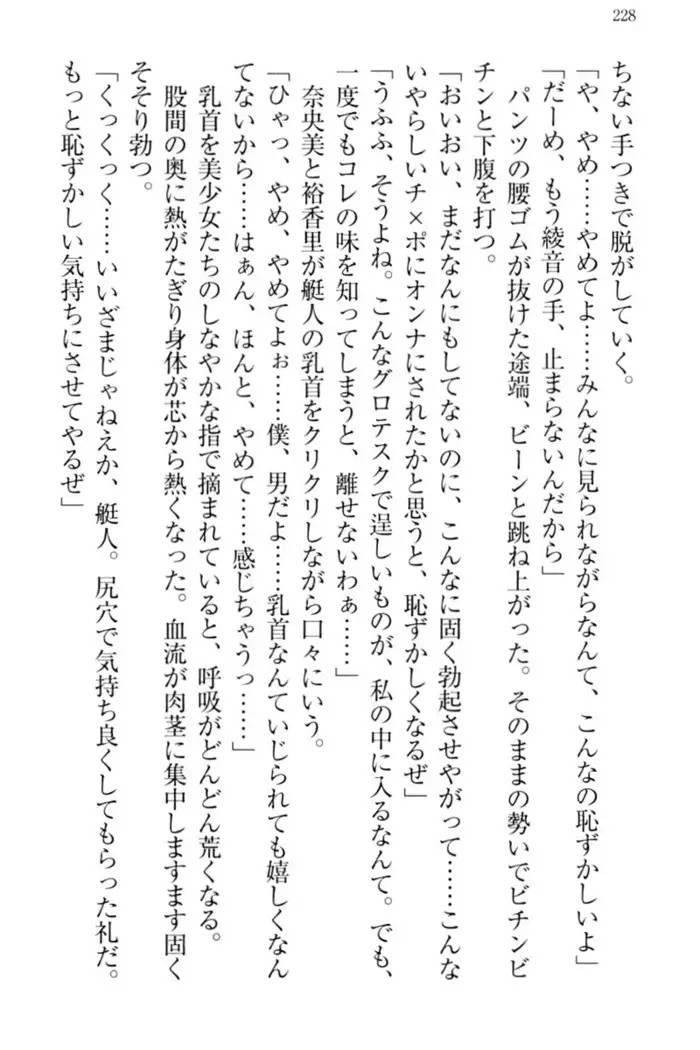 228
ちない手つきで脱がしていく。
「や、やめ……やめてよ……みんなに見られながらなんて、こんなの恥ずかしいよ」
「だーめ、もう綾音の手、止まらないんだから」
パンツの腰ゴムが抜けた途端、ビーンと跳ね上がった。そのままの勢いでビチンビ
チンと下腹を打つ。
「おいおい、まだなんにもしてないのに、こんなに固く勃起させやがって……こんな
いやらしいチ×ポにオンナにされたかと思うと、恥ずかしくなるぜ」
「うふふ、そうよね。こんなグロテスクで逞しいものが、私の中に入るなんて。でも、
一度でもコレの味を知ってしまうと、離せないわぁ……」
奈央美と裕香里が艇人の乳首をクリクリしながら口々にいう。
「ひゃっ、やめ、やめてよぉ……僕、男だよ……乳首なんていじられても嬉しくなん
てないから……はぁん、ほんと、やめて……感じちゃうっ……」
乳首を美少女たちのしなやかな指で摘まれていると、呼吸がどんどん荒くなる。
股間の奥に熱がたぎり身体が芯から熱くなった。血流が肉茎に集中しますます固く
そそり勃つ。
「くっくっく……いいざまじゃねえか、艇人。尻穴で気持ち良くしてもらった礼だ。
もっと恥ずかしい気持ちにさせてやるぜ」